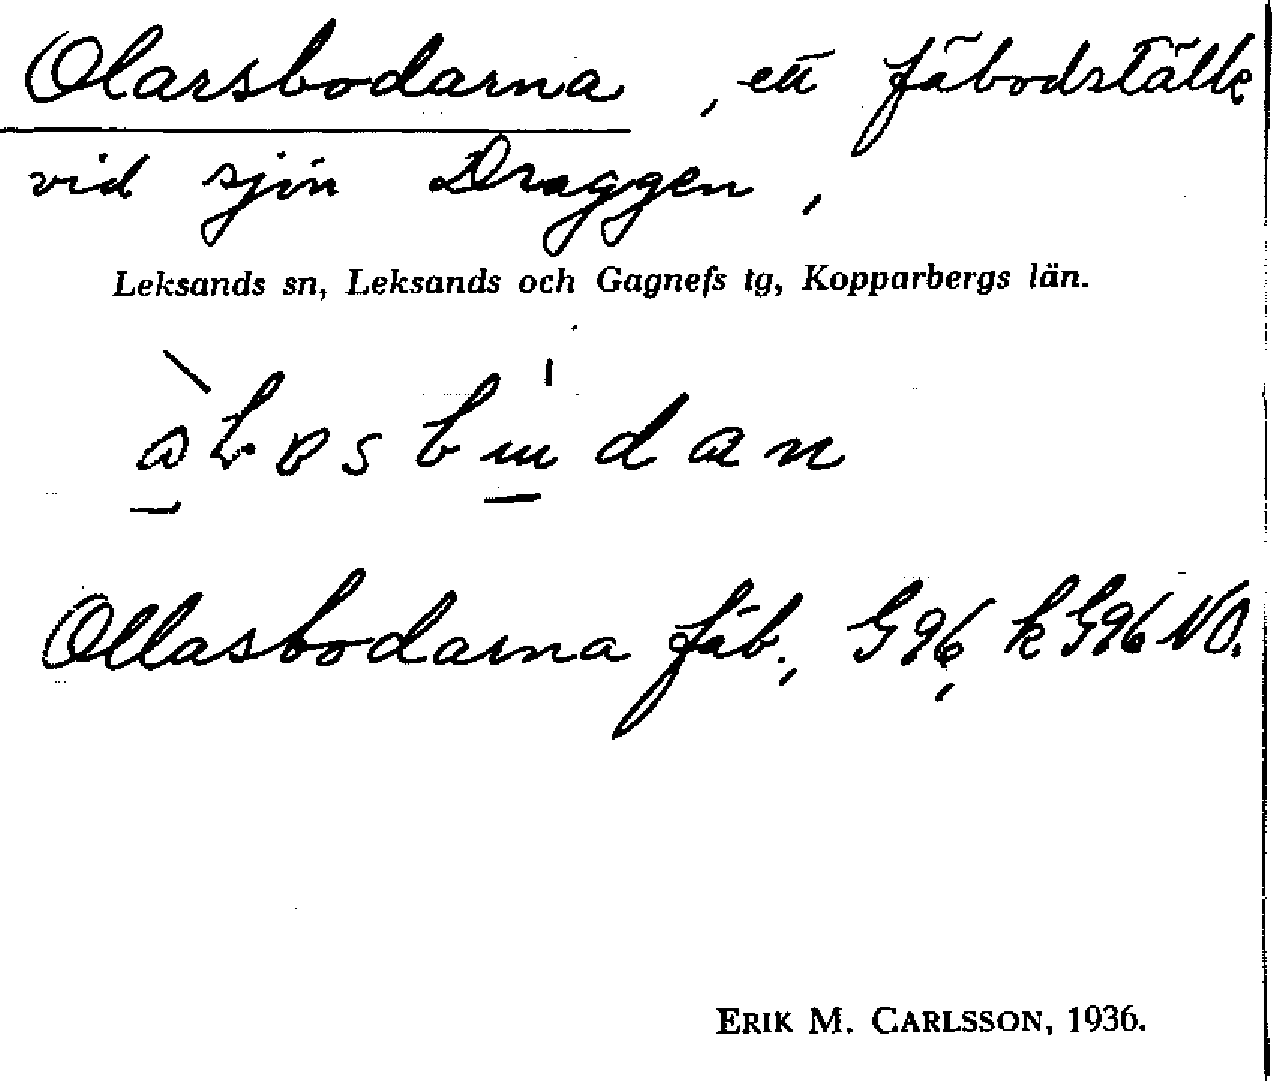 Olarsbodarna, ett fäbodställe
vid sjön Draggen,
Leksands sn, Leksands och Gagnefs tg, Kopparbergs län.
Ollasbodarna fäb., G96, k G96 NO.
ERIK M. CARLSSON, 1936.